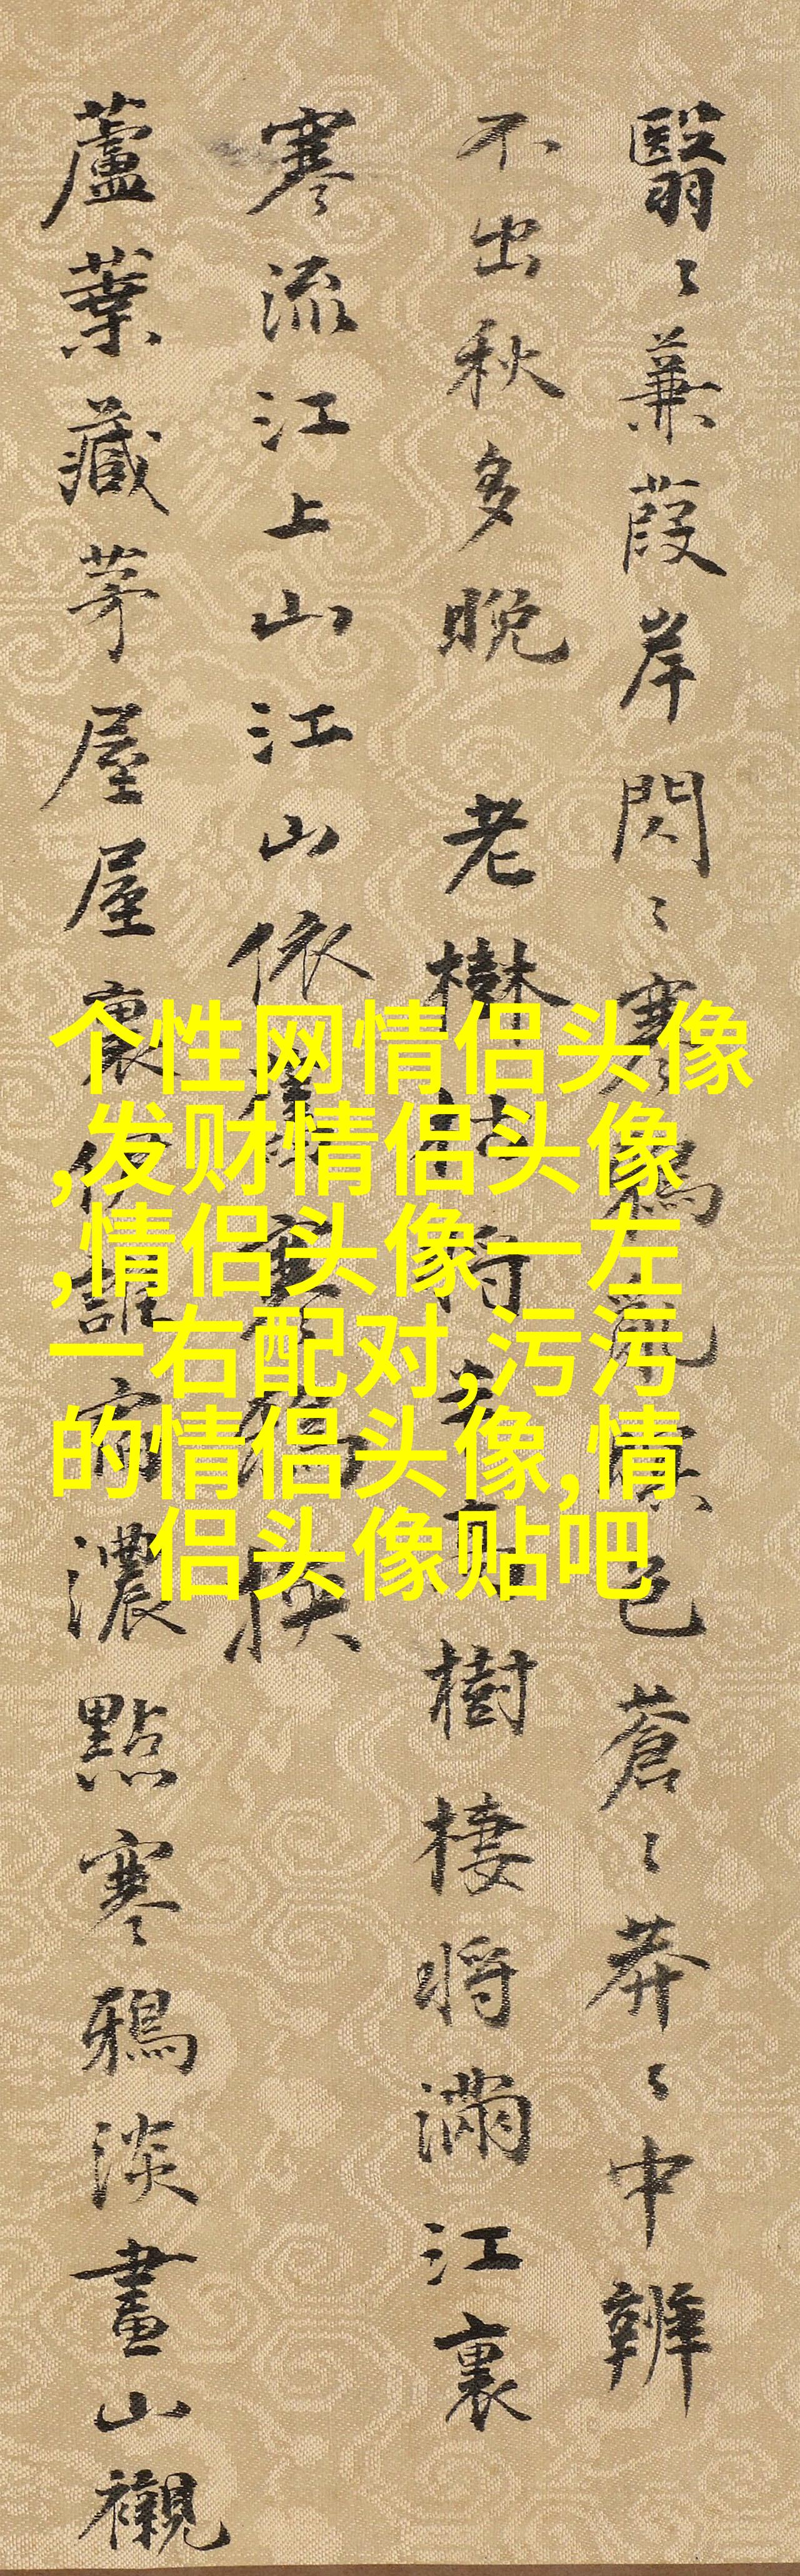 翳〻蒹葭岸閃〻寒鴉亂色蒼〻莽〻中辨
不出秋多晚 老樹枯將樹棲將滿江裏
寒流江上山江山依舊寒鴉換
蘆葉藏茅屋屋裏伊誰宿濃點寒鴉淡畫山襯
个性网情侣头像
,发财情侣头像
,情侣头像一左
一右配对,污污
的情侣头像,情
侣头像贴吧